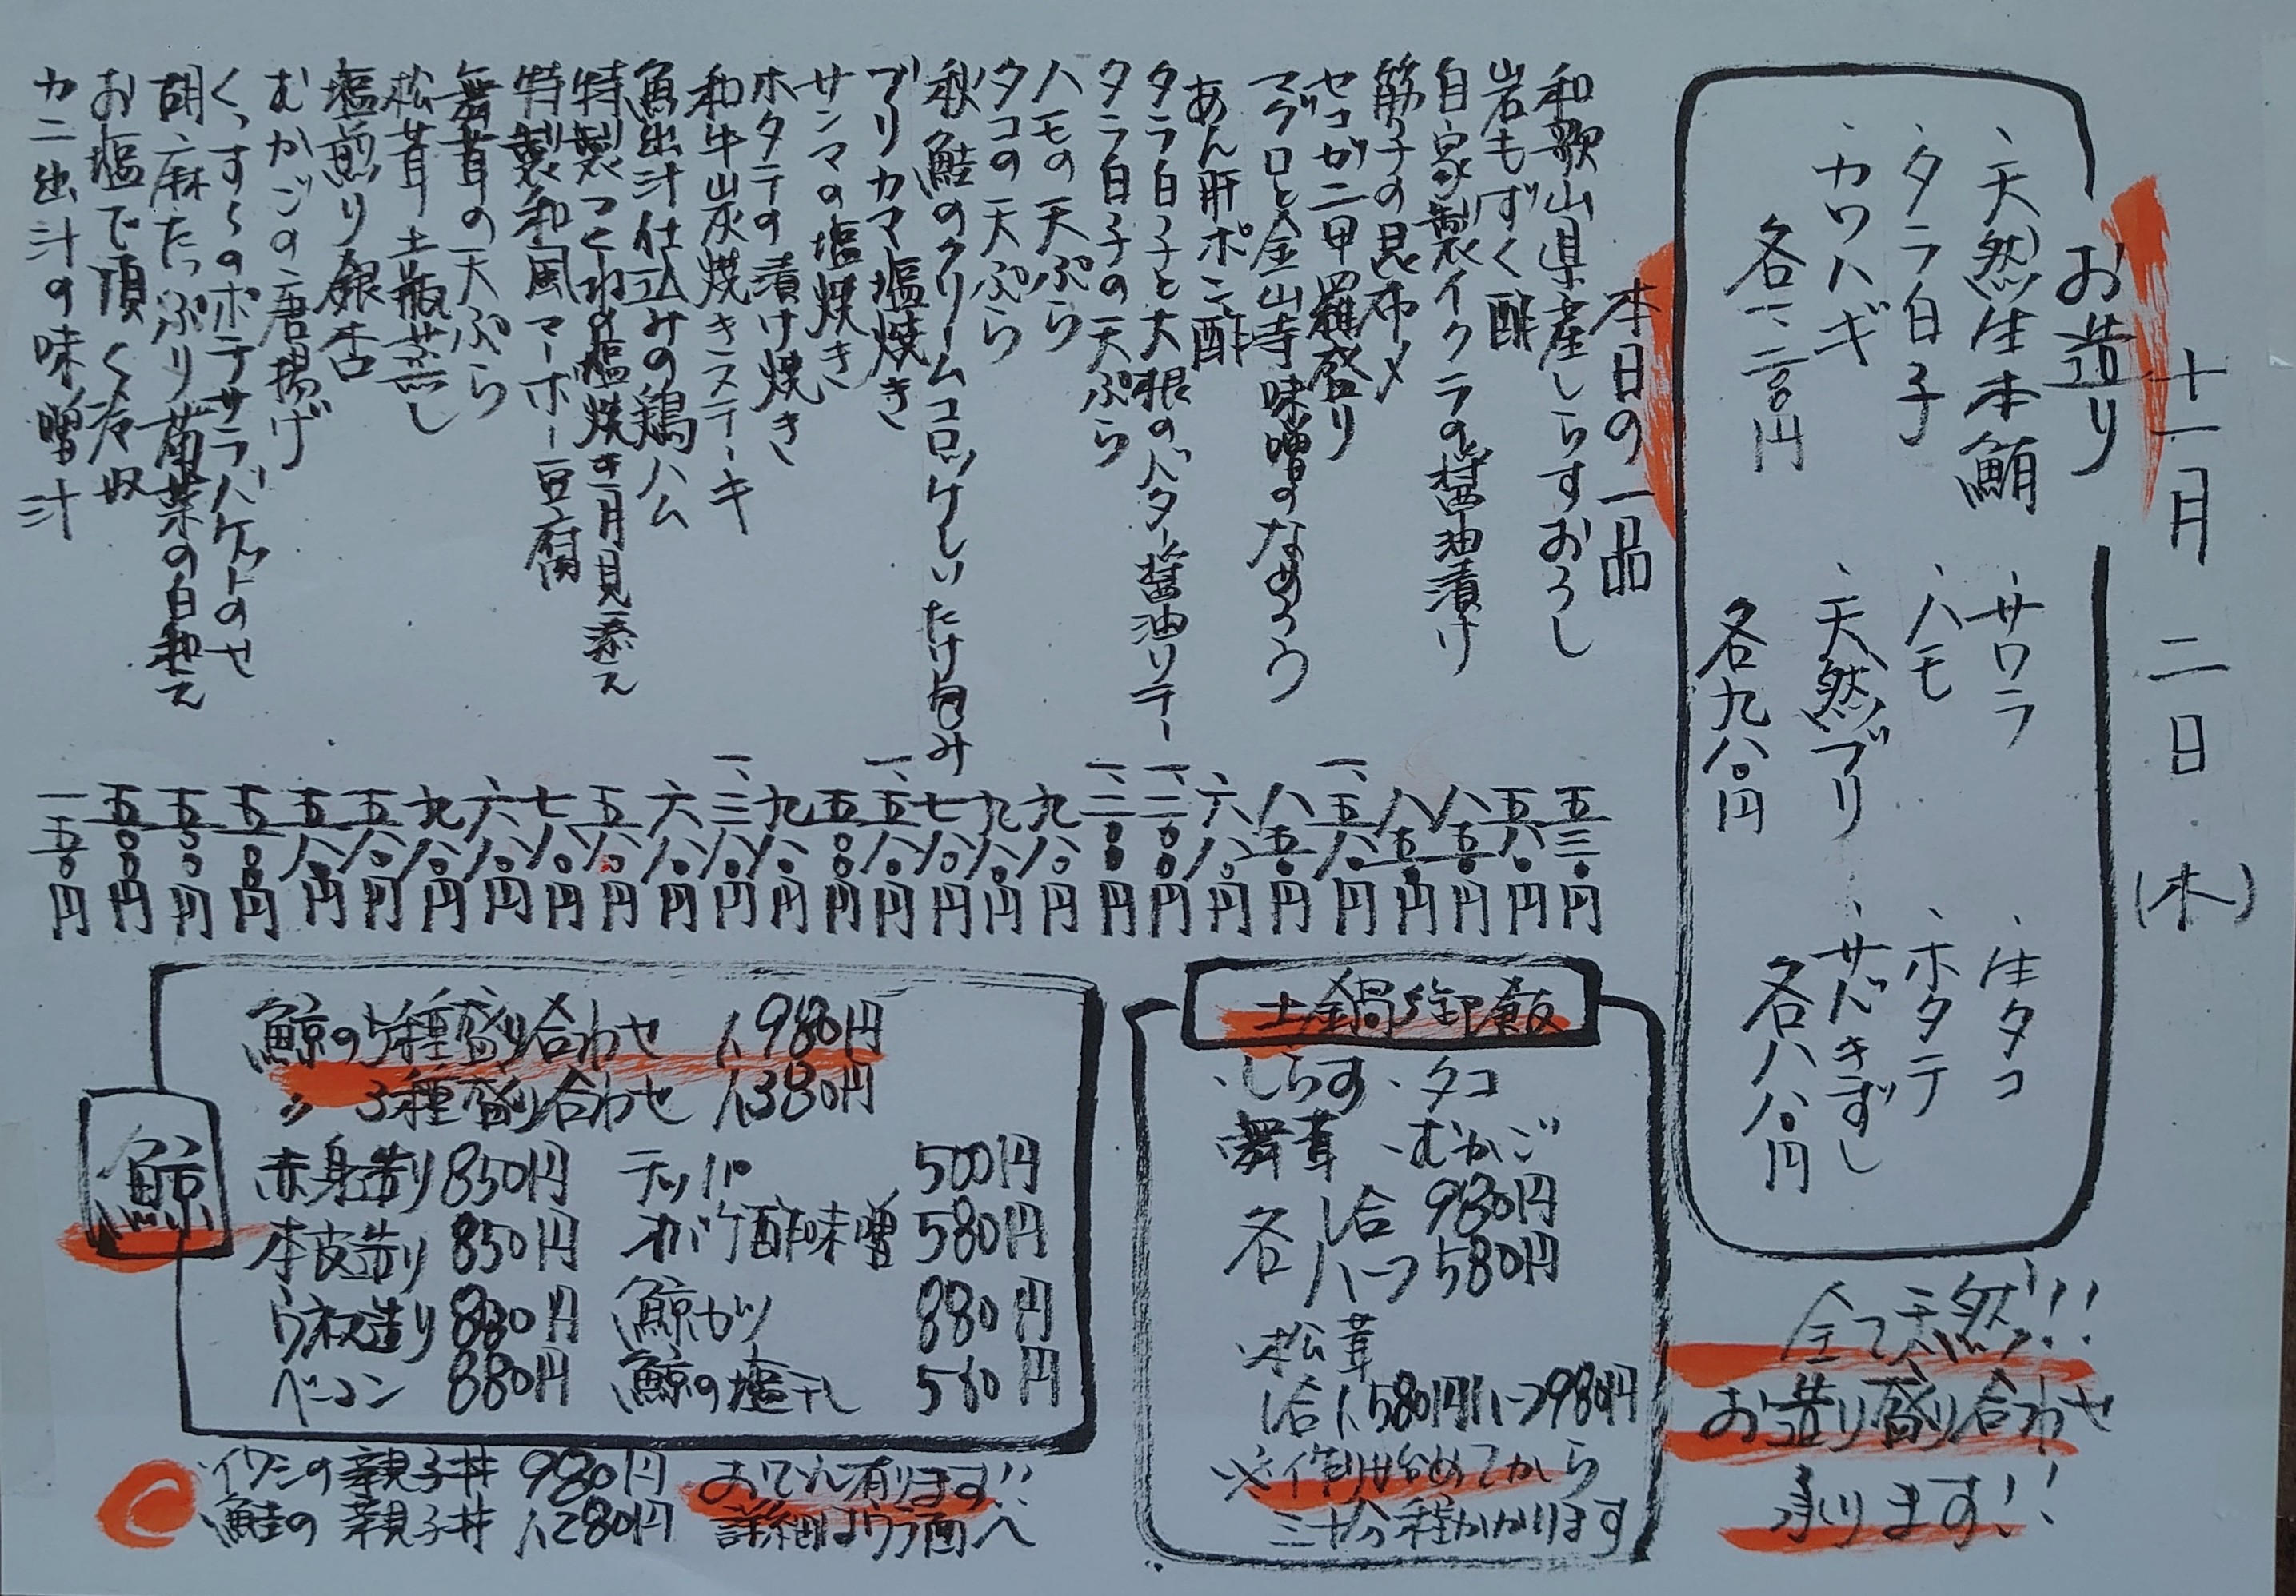 十一月二日(木)
お造り
、天然生本鮪
、タラ白子
、カワハギ
各一、二〇〇円
、サワラ
、ハモ
、天然ブリ
各九八〇円
、生タコ
、ホタテ
、サバきずし
各八八〇円
全て天然!!!
お造り盛り合わせ
承ります!!
本日の一品
和歌山県産しらすおろし 五三〇円
岩もずく酢 五八〇円
自家製イクラの醤油漬け 八五〇円
筋子の昆布〆 八五〇円
セコガニ甲羅盛り 一、五八〇円
マグロと金山寺味噌のなめろう 八五〇円
あん肝ポン酢 六八〇円
タラ白子と大根のバター醤油ソテー 一、二〇〇円
タラ白子の天ぷら 一、二〇〇円
ハモの天ぷら 九八〇円
タコの天ぷら 九八〇円
秋鮭のクリームコロッケしいたけ包み 七八〇円
ブリカマ塩焼き 一、五八〇円
サンマの塩焼き 五〇〇円
ホタテの漬け焼き 九八〇円
和牛山灰焼きステーキ 一、三八〇円
魚出汁仕込みの鶏ハム 六八〇円
特製つくねの塩焼き月見添え 五八〇円
特製和風マーボー豆腐 七八〇円
舞茸の天ぷら 六八〇円
松茸土瓶蒸し 九八〇円
塩煎り銀杏 五八〇円
むかごの唐揚げ 五八〇円
くっすくのポテサラバケットのせ 五五〇円
胡麻たっぷり菊菜の白和え 五五〇円
お塩で頂く冷奴 五〇〇円
カニ出汁の味噌汁 一五〇円
土鍋御飯
、しらす 、タコ
、舞茸 、むかご
各1合 980円
各ハーフ 580円
、松茸
1合1,580円ハーフ980円
※作り始めてから
三十分程かかります
鯨
鯨の5種盛り合わせ 1,980円
〃 3種盛り合わせ 1,380円
赤身造り 850円
本皮造り 850円
ウネス造り 880円
ベーコン 880円
テッパ 500円
オバケ酢味噌 580円
鯨カツ 880円
鯨の塩干し 580円
、イワシの親子丼 980円
、鮭の親子丼 1,280円
おでん有ります!!
詳細はウラ面へ